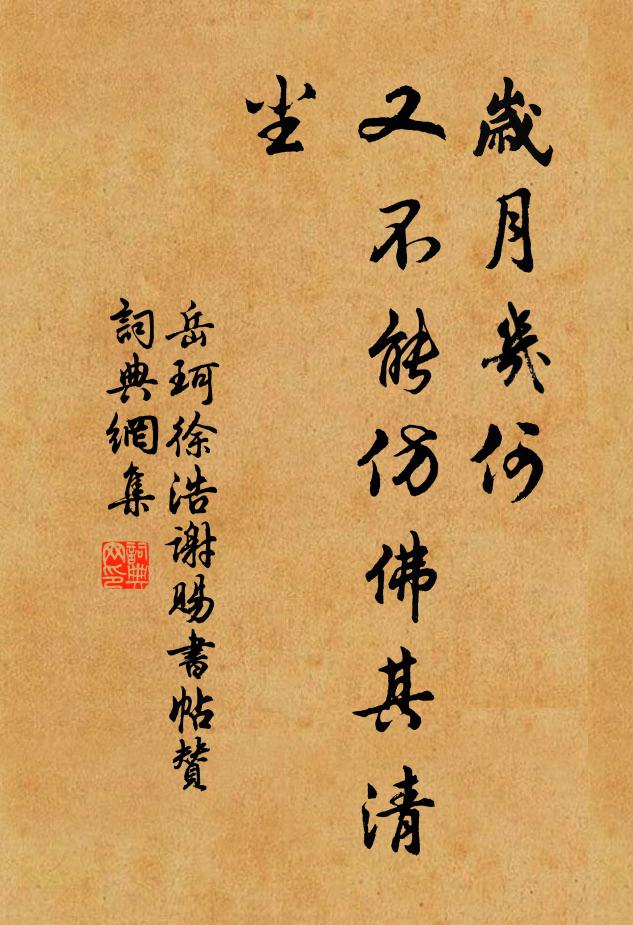 歲月幾何
又不能仿佛其清
尘
岳珂徐浩謝賜書帖贊
詞典網集
詞典
网印